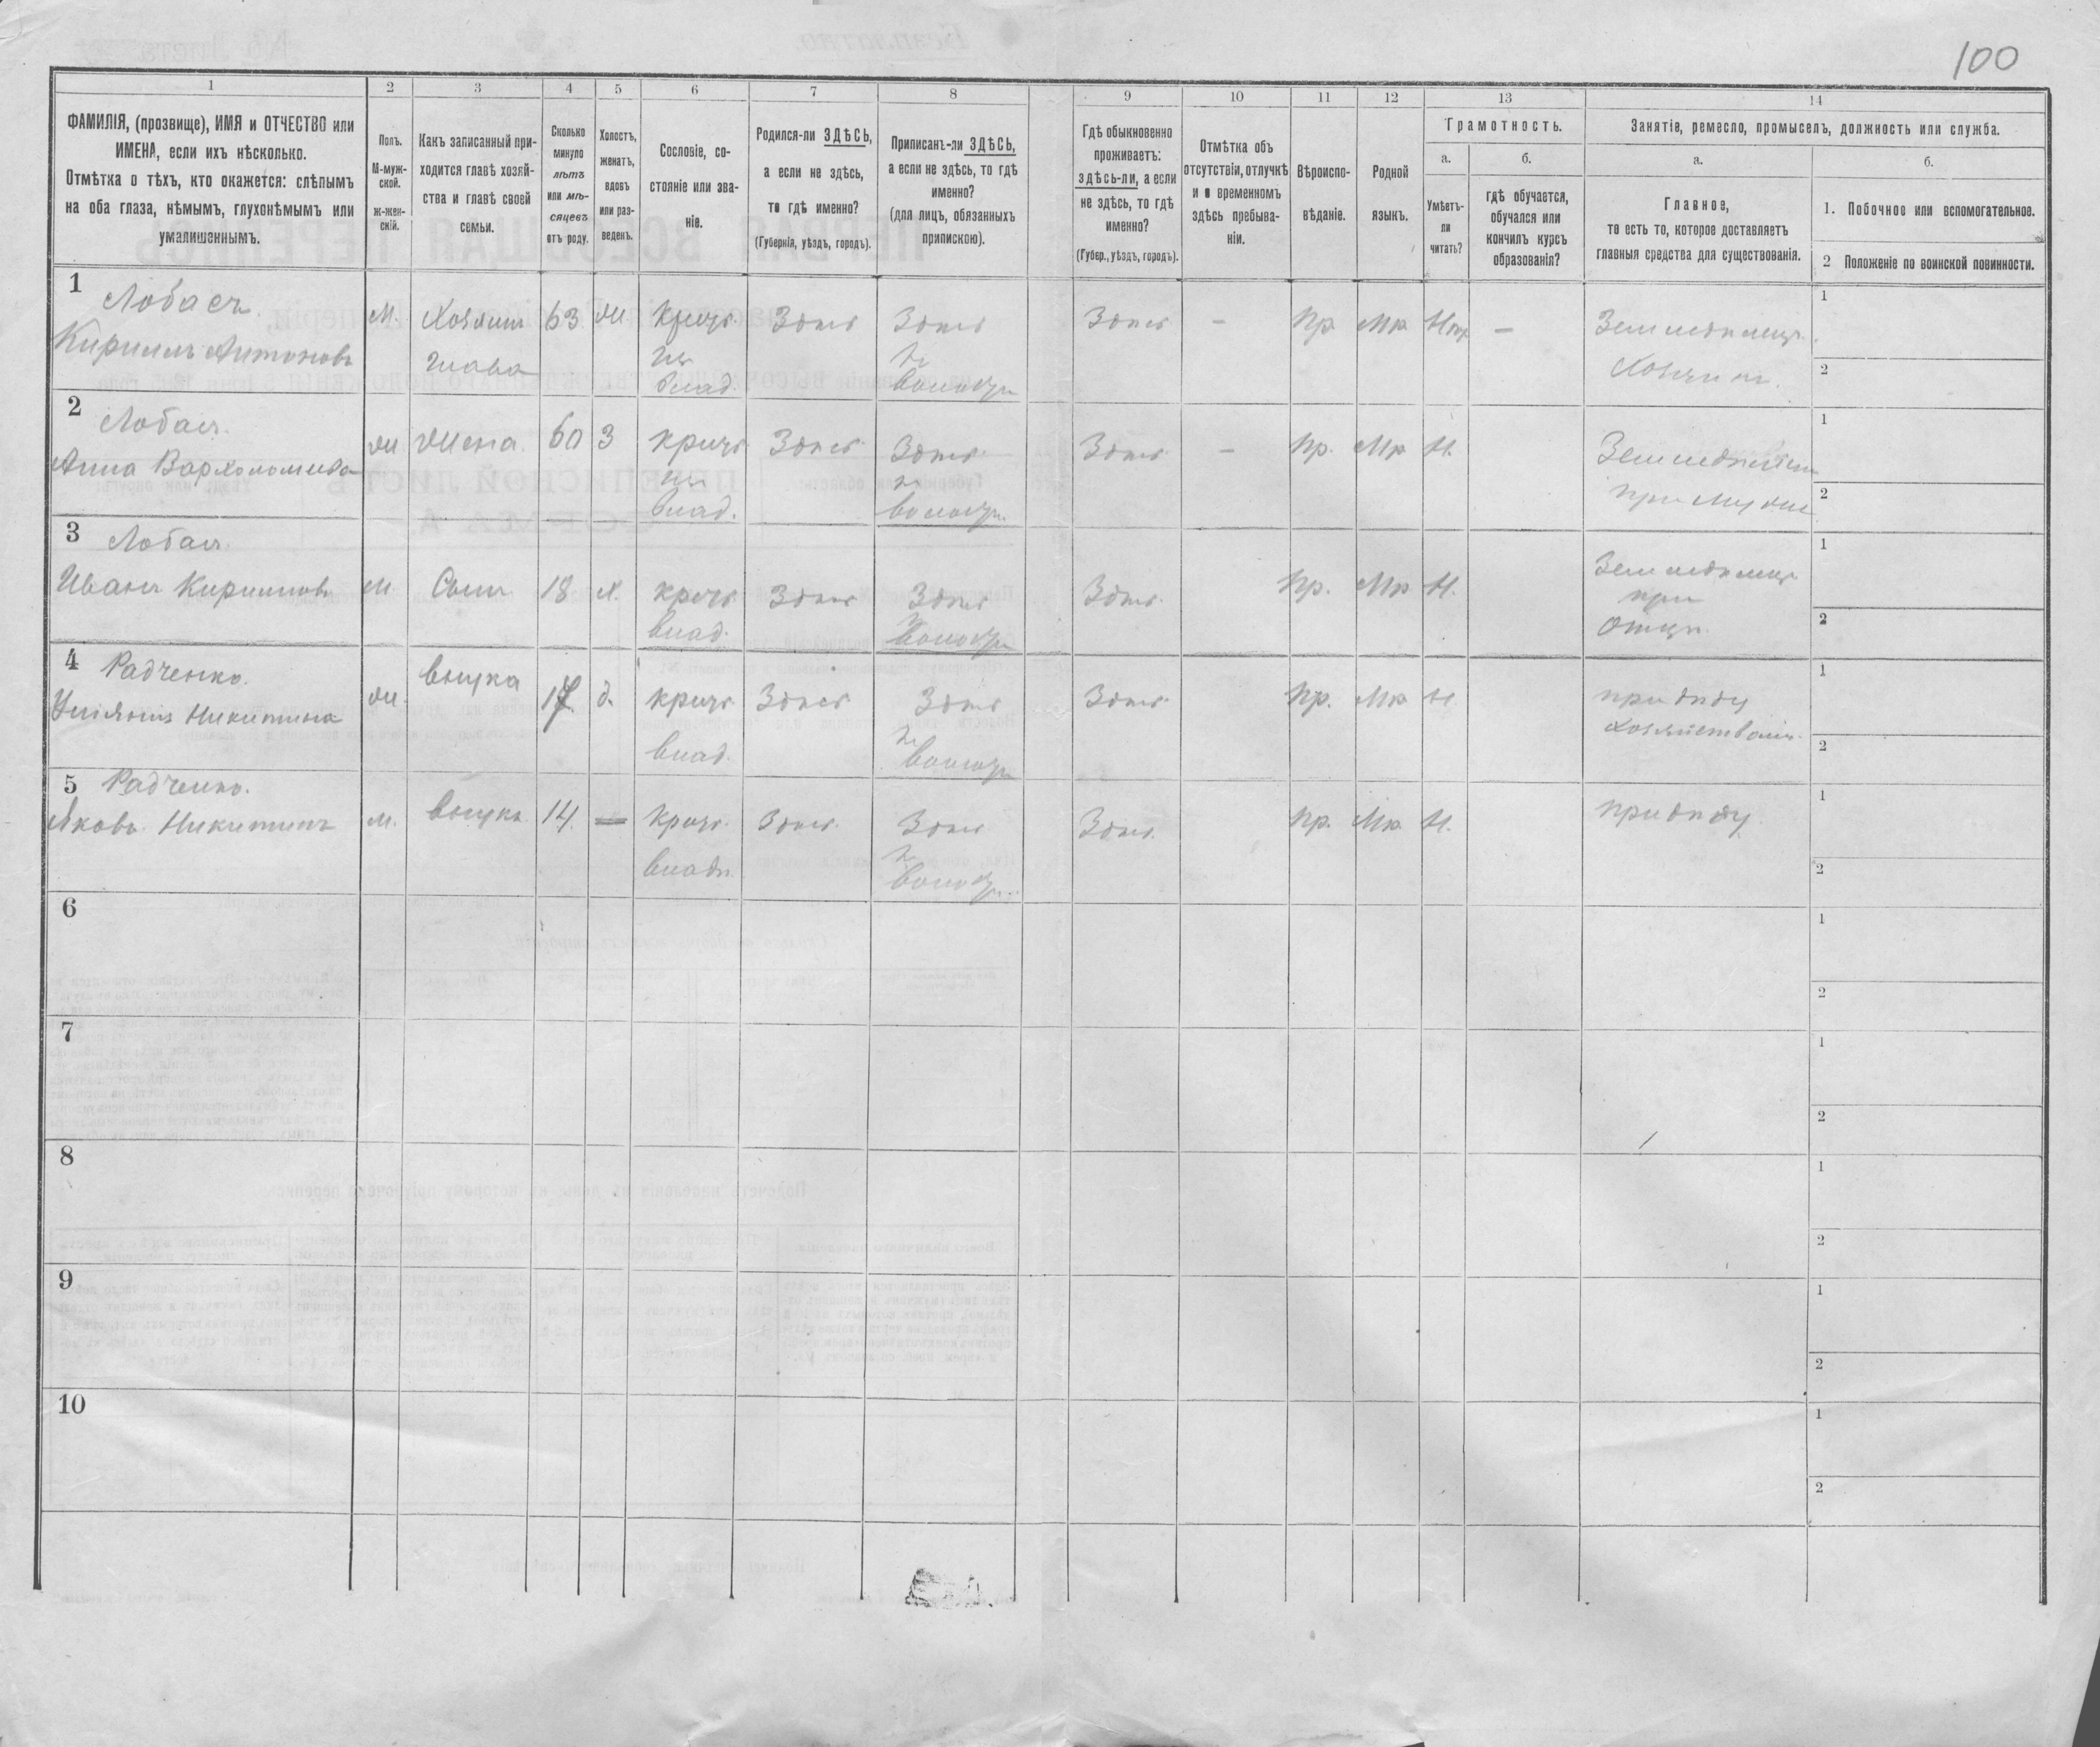 100
1 2 3 4 5 6 7 8 9 10 11 12 13 14
ФАМИЛІЯ, (прозвище), ИМЯ и ОТЧЕСТВО или
ИМЕНА, если ихъ нѣсколько.
Отмѣтка о тѣхъ, кто окажется: слѣпымъ
на оба глаза, нѣмымъ, глухонѣмымъ или
умалишеннымъ.
Полъ.
М-муж-
ской.
ж-жен-
скій.
Какъ записанный при-
ходится главѣ хозяй-
ства и главѣ своей
семьи.
Сколько
минуло
лѣтъ
или мѣ-
сяцевъ
отъ роду.
Холостъ,
женатъ,
вдовъ
или раз-
веденъ.
Сословіе, со-
стояніе или зва-
ніе.
Родился-ли ЗДѢСЬ,
а если не здѣсь,
то гдѣ именно?
(Губернія, уѣздъ, городъ).
Приписанъ-ли ЗДѢСЬ,
а если не здѣсь, то гдѣ
именно?
(для лицъ, обязанныхъ
припискою).
Гдѣ обыкновенно
проживаетъ:
здѣсь-ли, а если
не здѣсь, то гдѣ
именно?
(Губер., уѣздъ, городъ).
Отмѣтка объ
отсутствіи, отлучкѣ
и о временномъ
здѣсь пребыва-
ніи.
Вѣроиспо-
вѣданіе.
Родной
языкъ.
Грамотность.
а.
Умѣетъ-
ли
читать?
б.
гдѣ обучается,
обучался или
кончилъ курсъ
образованія?
Занятіе, ремесло, промыселъ, должность или служба.
а.
Главное,
то есть то, которое доставляетъ
главныя средства для существованія.
б.
1. Побочное или вспомогательное.
2 Положеніе по воинской повинности.
1 Лобасъ
Кириллъ Антоновъ
М. Хозяинъ 63 Ж Здѣсь Здѣсь Здѣсь – Пр. Мр – Земледѣлецъ
глава влад. Хозяинъ
1
2
2 Лобасъ
Анна Вархоломѣева
Ж Жена 60 З Здѣсь Здѣсь Здѣсь – Пр. Мр Н.
влад. при мужѣ
1
2
3 Лобасъ
Иванъ Кириловъ
М Сынъ 18 Х. Здѣсь Здѣсь Здѣсь Пр. Мр Н. Земледѣлецъ
влад. при
отцѣ
1
2
4 Радченко.
Ульяния Никитина
Ж внучка 17 д. Здѣсь Здѣсь Здѣсь Пр. Мр Н при дѣду
влад.
1
2
5 Радченко.
Яковъ Никитинъ
М. внукъ 14. Здѣсь Здѣсь Здѣсь Пр. Мр Н. при дѣду
влад.
1
2
6
1
2
7
1
2
8
1
2
9
1
2
10
1
2